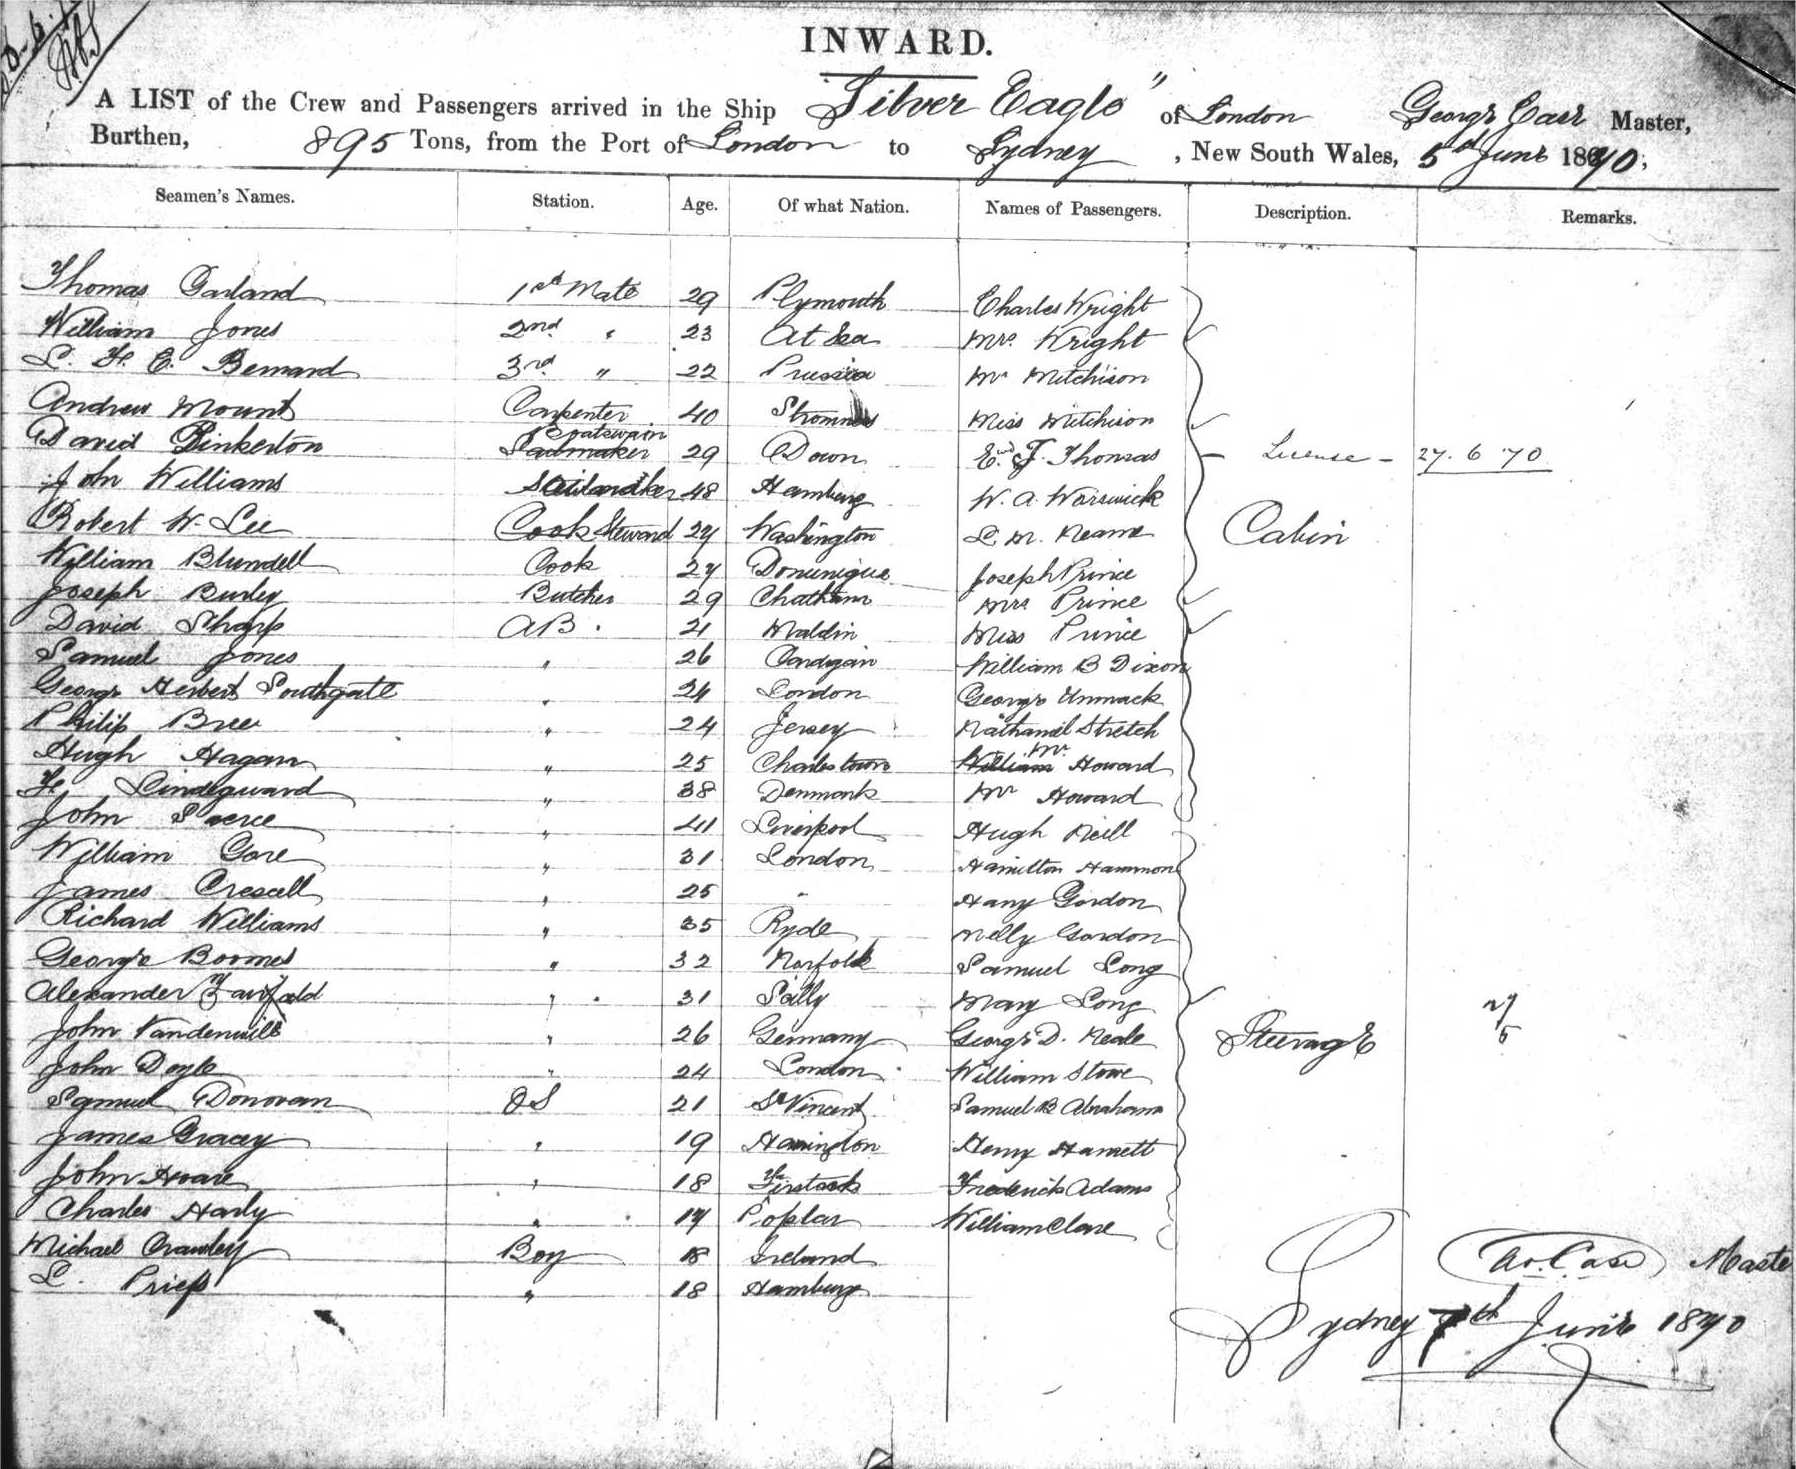 INWARD.
A LIST of the Crew and Passengers arrived in the Ship "Silver Eagle" of London George Case Master,
Burthen, 895 Tons, from the Port of London to Sydney, New South Wales, 5th June 1870,
Seamen's Names. Station. Age. Of what Nation. Names of Passengers. Description. Remarks.
Thomas Garland 1st Mate 29 Plymouth Charles Wright
William Jones 2nd " 23 At Sea Mrs. Wright
L. F. E. Bernard 3rd " 22 Prussia Mr Mitchison
Andrew Mount Carpenter 40 Stromness Miss Mitchison
David Pinkerton Boatswain 29 Down Ewd J. Thomas License - 27.6.70
John Williams 48 Hamburg W. A. Warwick
Robert W. Lee Cook Steward 27 Washington L. M. Neame Cabin
William Blundell Cook 27 Dominique Joseph Prince
Joseph Burley Butcher 29 Chatham Mrs Prince
David Sharp AB. 21 Maldin Miss Prince
Samuel Jones " 26 Cardigan William B Dixon
George Herbert Southgate " 24 London George Unmack
Philip Bree " 24 Jersey Nathaniel Stretch
Hugh Hagan " 25 Charlestown William Mr Howard
F. Lindegward " 38 Denmark Mr Howard
John " 41 Liverpool Hugh Neill
William Gore " 31 London Hamilton Hammond
James Cresell " 25 " Harry Gordon
Richard Williams " 35 Ryde Nelly Gordon
George Boomes " 32 Norfolk Samuel Long
Alexander " 31 Scilly Mary Long 27/5
John Vandenville " 26 Germany George D. Neale Steerage
John Doyle " 24 London William Stowe
Samuel Donovan OS 21 St Vincent Samuel B Abrahams
James Gracey " 19 Harrington Henry Harnett
John Hoare " 18 Frederick Adams
Charles Harly " 17 Poplar William Clare
Michael Crawley Boy 18 Ireland
L. Priess " 18 Hamburg
Geo. Case Master
Sydney 7th June 1870